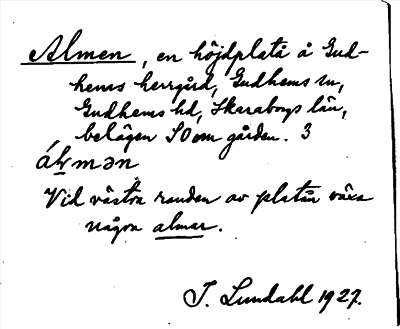 Almen, en höjdplatå å Gud-
hems herrgård, Gudhems sn,
Gudhems hd, Skaraborgs län,
belägen SO om gården. 3
álmən
Vid västra randen av platån växa
några almar.
J. Lundahl 1927.